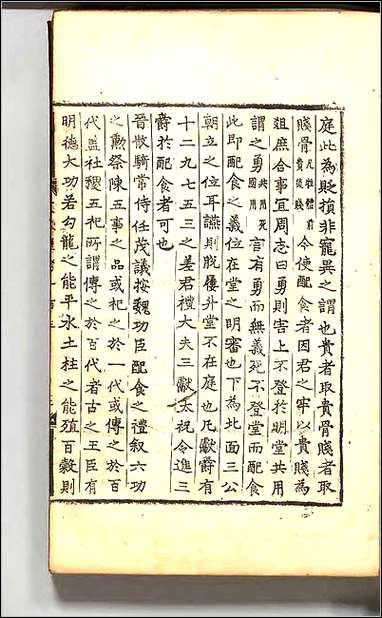 庭此為貶損非寵異之謂也貴者取貴骨賤者取
賤骨凡牲體前貴後賤今使配食者因君之牢以貴賤為
俎庶合事宜周志曰勇則害上不登於明堂共用
謂之勇共用死國用言有勇而無義死不登堂而配食
此即配食之義位在堂之明審也下為北面三公
朝立之位耳讌則脫屨升堂不在庭也凡獻爵有
十二九七五三之差君禮大夫三獻太祝令進三
爵於配食者可也
晉散騎常侍任茂議按魏功臣配食之禮叙六功
之勳祭陳五事之品或祀之於一代或傳之於百
代蓋社稷五祀所謂傳之於百代者古之王臣有
明德大功若勾龍之能平水土柱之能殖百穀則